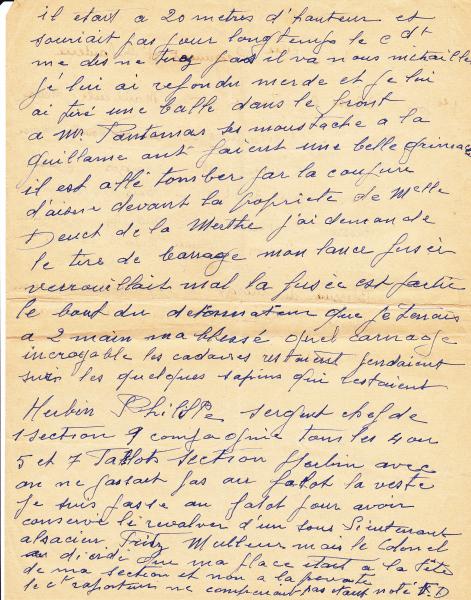 il etait a 20 metres d'hauteur et
souriait pas pour longtemps le cdt
me dis ne tirez pas il va nous mitraille
je lui ai repondu merde et je lui
ai tiré une balle dans le front
a Mr Fantomas ses moustache a la
Guillaume ont faient une belle grimace
il est allé tomber par la
d'aisne devant la propriete de Melle
de la Merthe j'ai demande
le tire de barrage mon lance fusée
verrouillait mal la fusée est partie
le bout du detonnateur que je tenais
a 2 main ma blessé quel carnage
incroyable les cadavres restaient pendaient
sur les quelques sapins qui restaient
Herbin Philippe sergent chef de
1 section 9 compagnie tous les 4 ou
5 et 7 section Herbin avec
on ne passait pas au falot la veste
je suis passe au falot pour avoir
conserve le revolver d'un sous lieutenant
alsacien Fritz Mulleur mais le Colonel
a dit que ma place etait a la tête
de ma section et non a la
le ct raporteur ne comprenait pas etant noté T.B